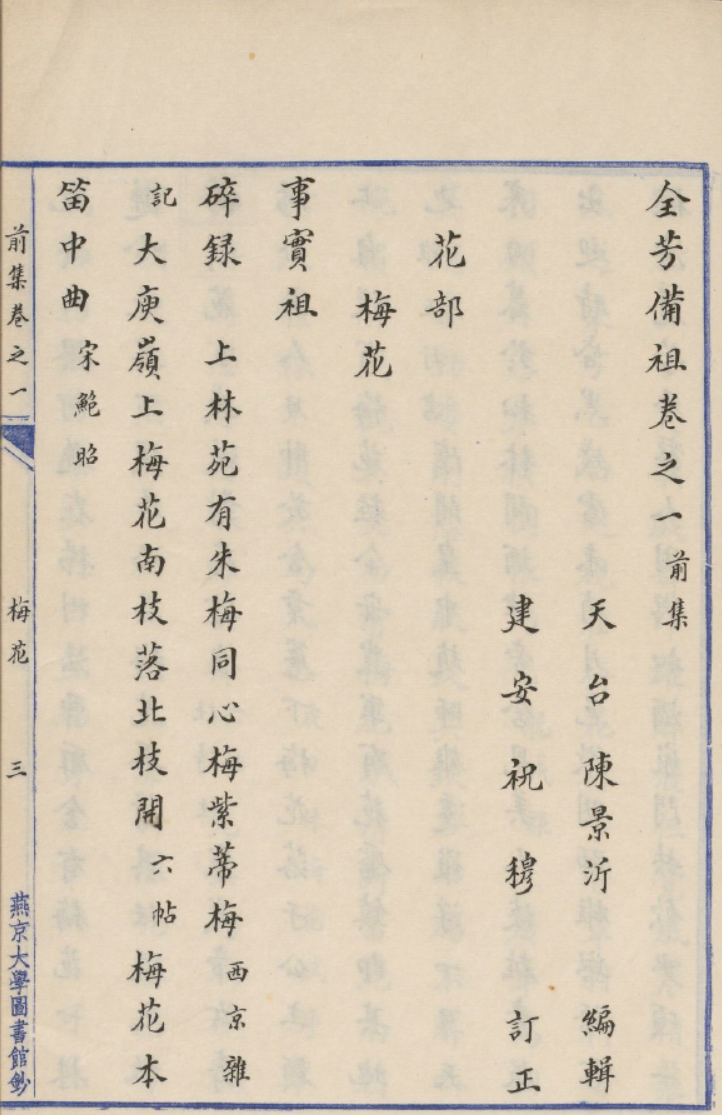 全芳備祖卷之一 前集
天台 陳景沂 編輯
建安 祝穆 訂正
花部
梅花
事實祖
碎録 上林苑有朱梅同心梅紫蒂梅 西京雜
記 大庾嶺上梅花南枝落北枝開 六帖 梅花本
笛中曲 宋鮑昭
前集卷之一 梅花 三
燕京大學圖書館鈔